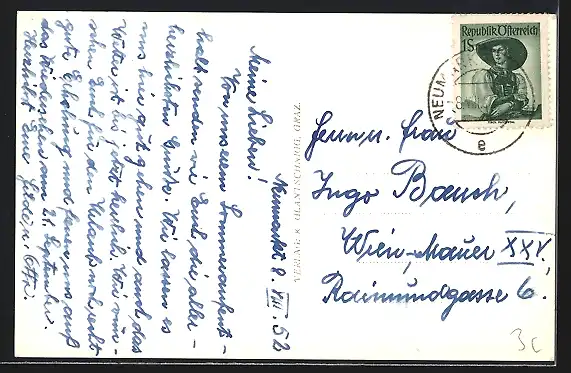 Neumarkt 8. VIII. 52
Meine Lieben!
Von unserem Sommeraufent-
halt senden wir Euch die aller-
herzlichsten Grüße. Wir lassen es
uns hier gut gehen und auch das
Wetter ist bis jetzt herrlich. Wir wün-
schen Euch für den Urlaub recht
gute Erholung und freuen uns auf
das Wiedersehen am 21. September.
Herzlichst Eure
VERLAG: K. GLANTSCHNIGG, GRAZ.
Republik Österreich
1S
NEUMARKT
e
Herrn u. Frau
Ingo Bauch,
Wien-Mauer XXV.
Raimundgasse 6.
3c